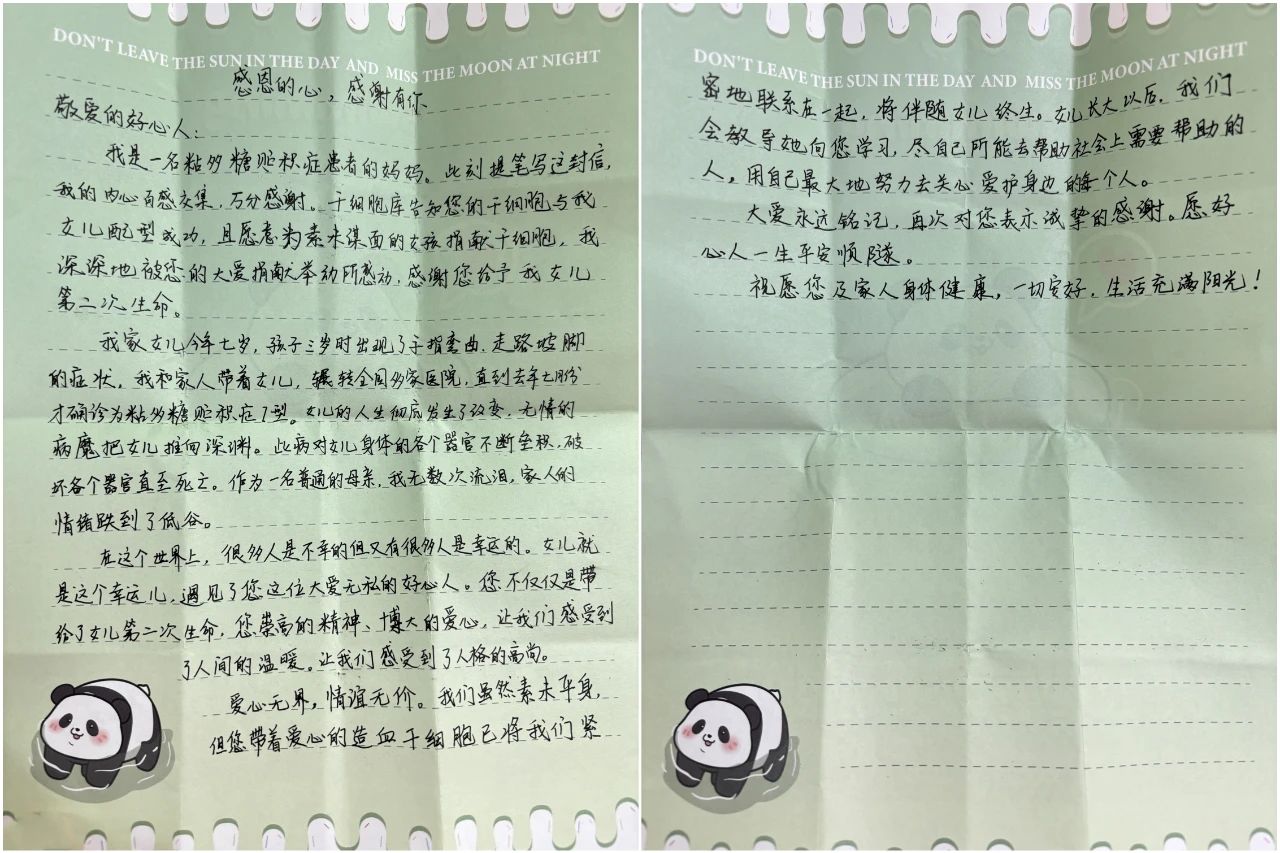 DON'T LEAVE THE SUN IN THE DAY AND MISS THE MOON AT NIGHT
感恩的心，感谢有你
敬爱的好心人：
我是一名粘多糖贮积症患者的妈妈。此刻提笔写这封信，
我的内心百感交集，万分感谢。干细胞库告知您的干细胞与我
女儿配型成功，且愿意为素未谋面的女孩捐献干细胞，我
深深地被您的大爱捐献举动所感动，感谢您给予我女儿
第二次生命。
我家女儿今年七岁，孩子三岁时出现了手指弯曲、走路坡脚
的症状，我和家人带着女儿，辗转全国多家医院，直到去年七月份
才确诊为粘多糖贮积症1型。女儿的人生彻底发生了改变，无情的
病魔把女儿推向深渊。此病对女儿身体的各个器官不断垒积，破
坏各个器官直至死亡。作为一名普通的母亲，我无数次流泪，家人的
情绪跌到了低谷。
在这个世界上，很多人是不幸的但又有很多人是幸运的。女儿就
是这个幸运儿，遇见了您这位大爱无私的好心人。您不仅仅是带
给了女儿第二次生命，您崇高的精神、博大的爱心，让我们感受到
了人间的温暖。让我们感受到了人格的高尚。
爱心无界，情谊无价。我们虽然素未平身，
但您带着爱心的造血干细胞已将我们紧
DON'T LEAVE THE SUN IN THE DAY AND MISS THE MOON AT NIGHT
密地联系在一起，将伴随女儿终生。女儿长大以后，我们
会教导她向您学习，尽自己所能去帮助社会上需要帮助的
人，用自己最大地努力去关心爱护身边的每个人。
大爱永远铭记，再次对您表示诚挚的感谢。愿好
心人一生平安顺隧。
祝愿您及家人身体健康，一切安好，生活充满阳光！